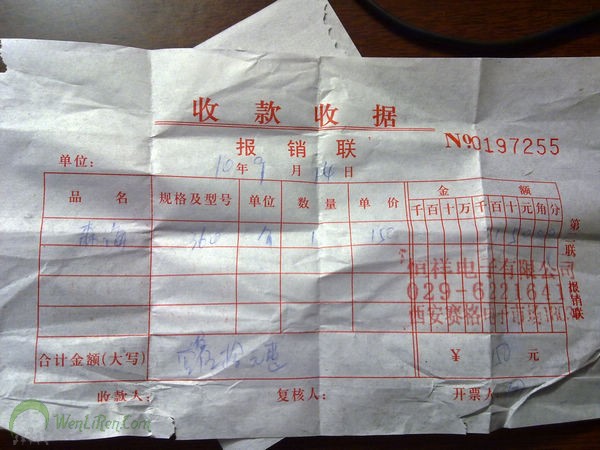 收款收据
报销联 №0197255
单位： 10年9月14日
品名 规格及型号 单位 数量 单价 金额
千百十万千百十元角分
360 个 1 150
恒祥电子有限公司
029-6221641
西安赛格电子市场
第 联 报销联
合计金额(大写) ¥ 150元
收款人： 复核人： 开票人
WenLiRen.Com